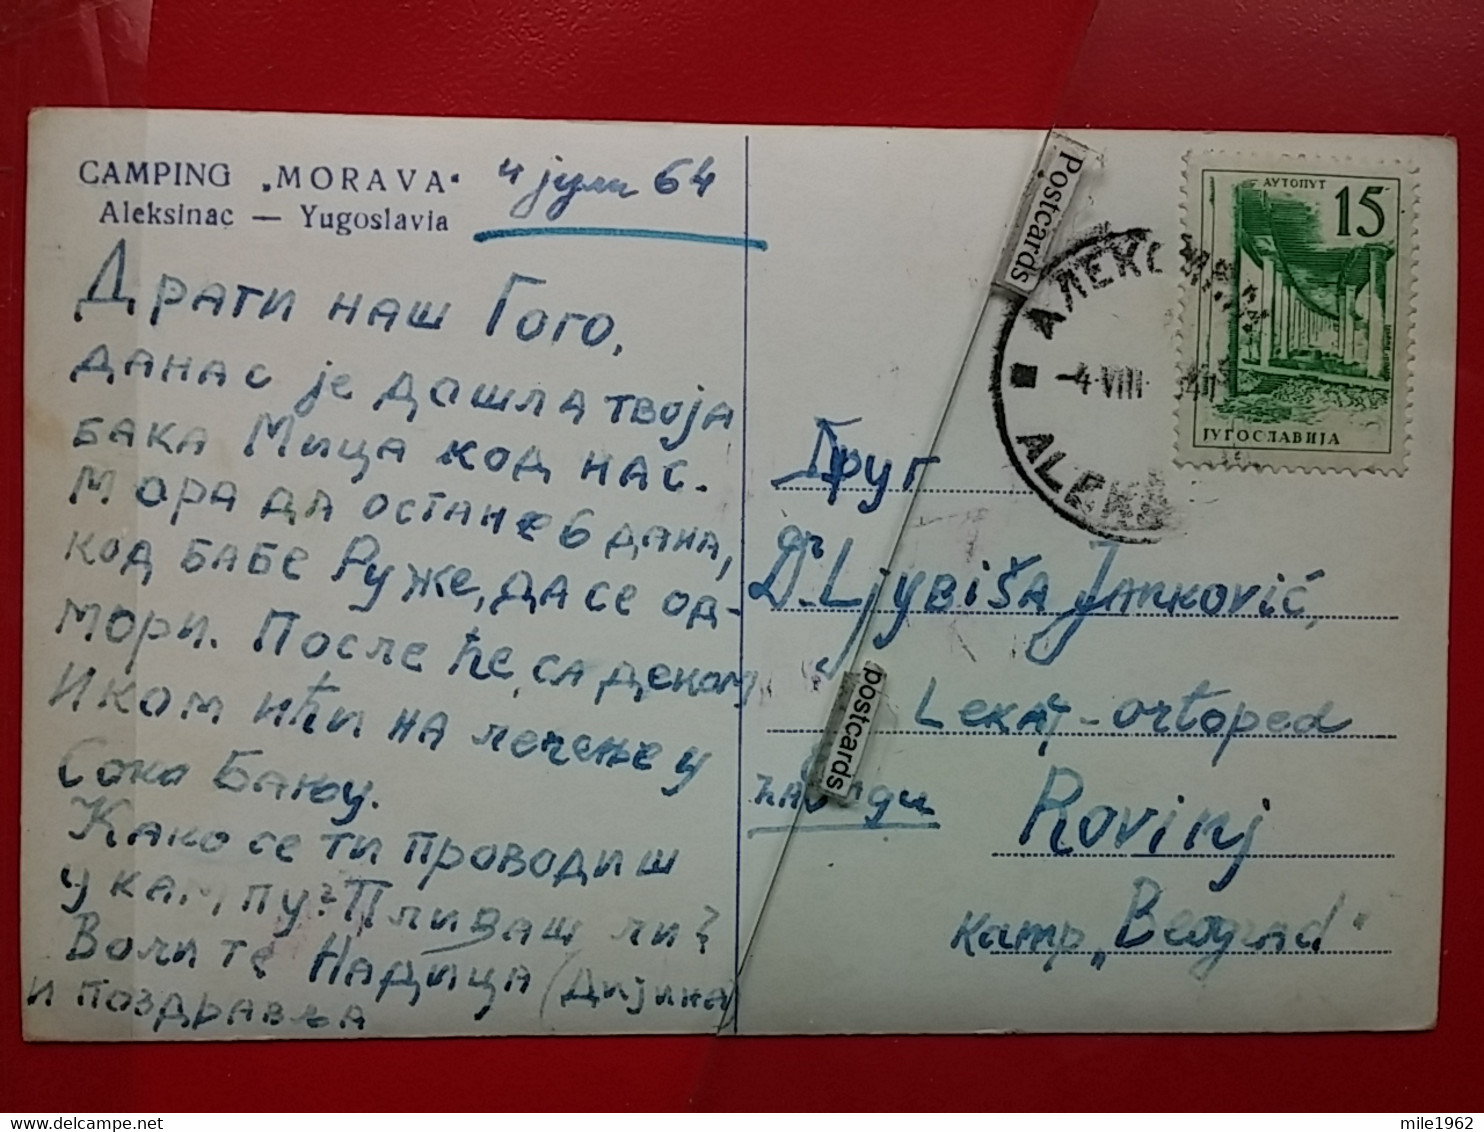 CAMPING „MORAVA“
Aleksinac — Yugoslavia
4 јули 64
Драги наш Гого,
данас је дошла твоја
бака Мица код нас.
Мора да остане 6 дана,
код бабе Руже, да се од-
мори. После ће, са деком
Иком ићи на лечење у
Соко Бању.
Како се ти проводиш
у кампу? Пливаш ли?
Воли те Надица (Дијина)
и поздравља
Postcards
АЛЕКСИНАЦ
4-VIII
ALEKS
АУТОПУТ
15
ЈУГОСЛАВИЈА
Друг
Dr Ljubiša Janković,
Lekar-ortoped
postcards
Rovinj
Kamp „Beograd“
mile1962